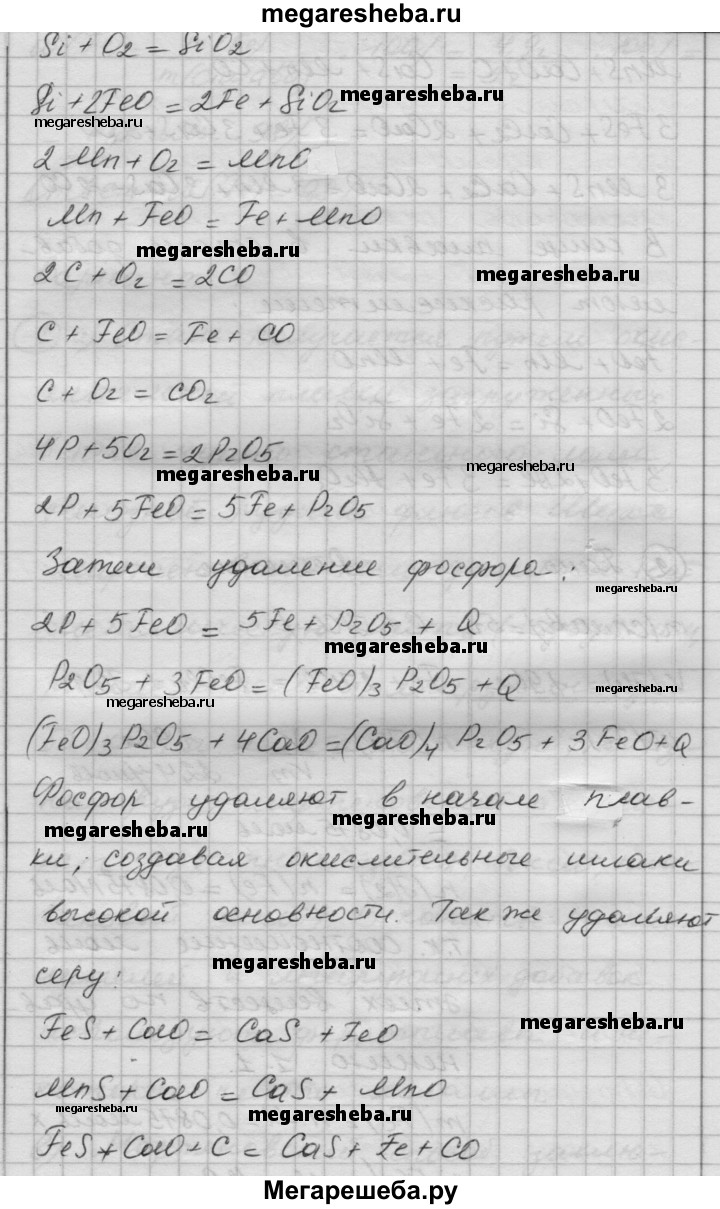 megaresheba.ru
Si + O2 = SiO2
Si + 2FeO = 2Fe + SiO2
megaresheba.ru
megaresheba.ru
2 Mn + O2 = MnO
Mn + FeO = Fe + MnO
megaresheba.ru
2C + O2 = 2CO
megaresheba.ru
C + FeO = Fe + CO
C + O2 = CO2
4P + 5O2 = 2P2O5
megaresheba.ru
2P + 5FeO = 5Fe + P2O5
Затем удаление фосфора:
megaresheba.ru
2P + 5FeO = 5Fe + P2O5 + Q
megaresheba.ru
P2O5 + 3FeO = (FeO)3 P2O5 + Q
megaresheba.ru
megaresheba.ru
(FeO)3 P2O5 + 4CaO = (CaO)4 P2O5 + 3FeO + Q
Фосфор удаляют в начале плав-
megaresheba.ru
megaresheba.ru
ки, создавая окислительные шлаки
высокой основности. Так же удаляют
megaresheba.ru
серу:
megaresheba.ru
FeS + CaO = CaS + FeO
MnS + CaO = CaS + MnO
megaresheba.ru
megaresheba.ru
FeS + CaO + C = CaS + Fe + CO
Мегарешеба.ру